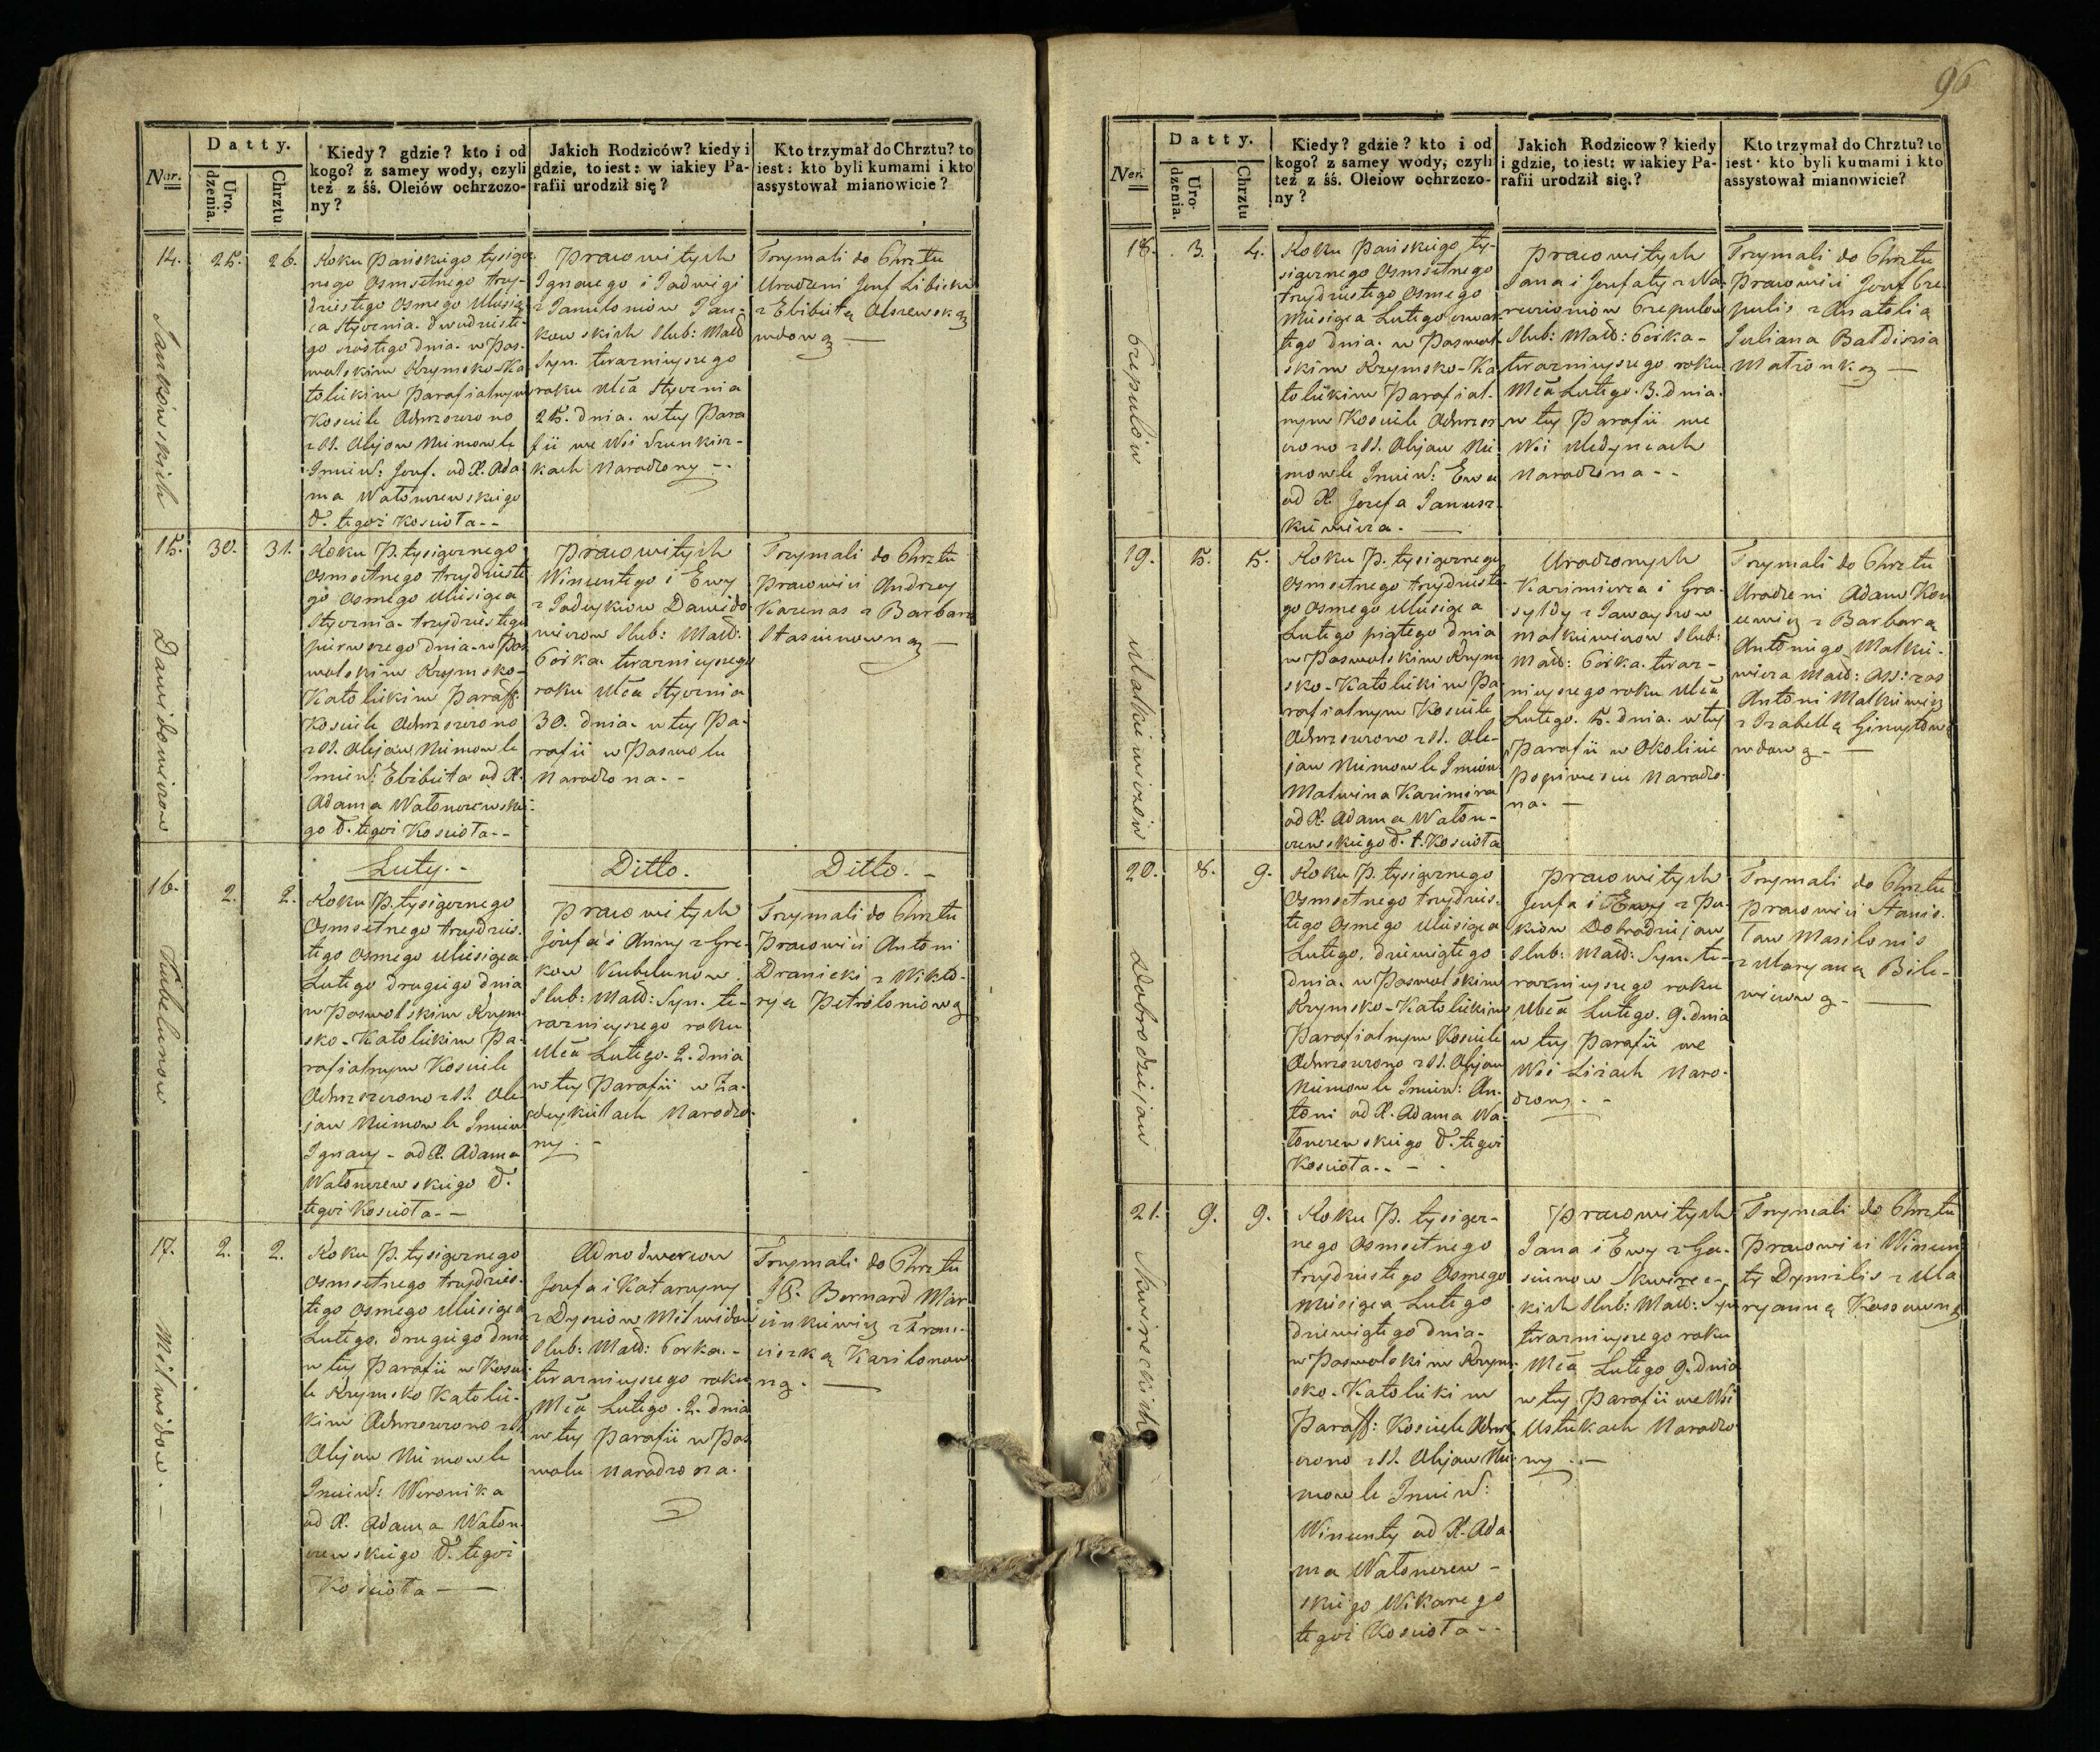 96
Datty.
Ner.
Uro-
dzenia.
Chrztu
Kiedy? gdzie? kto i od
kogo? z samey wody, czyli
też z śś. Oleiów ochrzczo-
ny?
Jakich Rodziców? kiedy i
gdzie, to iest: w iakiey Pa-
rafii urodził się?
Kto trzymał do Chrztu? to
iest: kto byli kumami i kto
assystował mianowicie?
14. 25. 26.
Jankowskich
Roku Pańskiego tysięcz
nego Osmsetnego trzy-
dziestego Osmego Miesią
ca Stycznia. dwudzieste-
go szostego dnia. w Pos-
wolskim Rzymsko-Ka
tolickim Parafialnym
Kosciele Ochrzczono
z SS. Olejow Niemowle
Imien: Jozef. od X. Ada
ma Wałonczewskiego
W. tegoż Koscioła--
Pracowitych
Ignacego i Jadwigi
z Jamułoniow Jan-
kowskich Slub: Małż
Syn. teraznieyszego
roku Mca Stycznia
25. dnia. w tey Para
fii we Wsi Szunkisz-
kach Narodzony--
Trzymali do Chrztu
Urodzeni Jozef Libicki
z Elżbietą Olszewską
wdową —
15. 30. 31.
Dawidowiczow
Roku P. tysięcznego
Osmsetnego trzydzieste
go Osmego Miesiąca
Stycznia. trzydziestego
pierwszego dnia. w Pos
wolskim Rzymsko-
Katolickim Paraff:
Kosciele Ochrzczono
z SS. Olejow Niemowle
Imien: Elżbieta od X.
Adama Wałonczewskie-
go W. tegoż Koscioła--
Pracowitych
Wincentego i Ewy
z Jodeykiow Dawido
wiczow Slub: Małż:
Corka. teraznieyszego
roku Mca Stycznia
30. dnia. w tey Pa-
rafii w Poswolu
Narodzona.-
Trzymali do Chrztu
Pracowici Andrzey
Karenas z Barbarą
Stasiunowną —
Luty.-
Ditto.
Ditto.-
16. 2. 2.
Kubelunow
Roku P. tysięcznego
Osmsetnego trzydzies-
tego Osmego Miesiąca
Lutego drugiego dnia
w Poswolskim Rzym
sko-Katolickim Pa-
rafialnym Kosciele
Ochrzczono z SS. Ole-
jow Niemowle Imien
Ignacy - od X. Adama
Wałonczewskiego W.
tegoż Koscioła--
Pracowitych
Józefa i Anny z Gre-
kow Kubelunow.
Slub: Małż: Syn. te-
raznieyszego roku
Mca Lutego. 2. dnia
w tey Parafii w Za-
deykielach Narodzo-
ny.-
Trzymali do Chrztu
Pracowici Antoni
Dranicki z Wikto-
ryą Petroloniową
17. 2. 2.
Milwidow.-
Roku P. tysięcznego
Osmsetnego trzydzies-
tego Osmego Miesiąca
Lutego. drugiego dnia
w tey Parafii w Koscie-
le Rzymsko Katolic-
kim Ochrzczono z SS
Olejow Niemowle
Imien: Weronika
od X. Adama Wałon-
czewskiego W. tegoż
Koscioła—
Odnodworcow
Jozefa i Katarzyny
z Dysiow Milwidow
Slub: Małż: Corka.-
teraznieyszego roku
Mca Lutego. 2. dnia
w tey Parafii w Pos
wolu Narodzona.
Trzymali do Chrztu
JP. Bernard Mar
cinkiewicz z Fran-
ciszką Karilonow
ną.—
Datty.
Ner.
Uro-
dzenia.
Chrztu
Kiedy? gdzie? kto i od
kogo? z samey wody, czyli
też z śś. Oleiow ochrzczo-
ny?
Jakich Rodzicow? kiedy
i gdzie, to iest: w iakiey Pa-
rafii urodził się.?
Kto trzymał do Chrztu? to
iest: kto byli kumami i kto
assystował mianowicie?
18. 3. 4.
Czepulow
Roku Pańskiego ty-
sięcznego Osmsetnego
trzydziestego Osmego
Miesiąca Lutego czwar-
tego dnia. w Poswol-
skim Rzymsko-Ka
tolickim Parafial-
nym Kosciele Ochrzcz
czono z SS. Olejow Nie
mowle Imien: Ewa
od X. Jozefa Janusz-
kiewicza.—
Pracowitych
Jana i Jozefaty z Na
rwiciow Czepulow
Slub: Małż: Corka-
teraznieyszego roku
Mca Lutego. 3. dnia.
w tey Parafii we
Wsi Medyniach
Narodzona--
Trzymali do Chrztu
Pracowici Jozef Cze-
pulis z Anatolią
Juliana Baldisza
Małżonką —
19. 5. 5.
Matkiewiczow
Roku P. tysięcznego
Osmsetnego trzydzieste-
go Osmego Miesiąca
Lutego piątego dnia
w Poswolskim Rzym
sko-Katolickim Pa-
rafialnym Kosciele
Ochrzczono z SS. Ole-
jow Niemowle Imien
Malwina Kazimira
od X. Adama Wałon-
czewskiego W. t. Kosciola
Urodzonych
Kazimierza i Gra-
syldy z Jawayszow
Matkiewiczow Slub:
Małż: Corka. teraz-
nieyszego roku Mca
Lutego. 5. dnia. w tey
Parafii w Okolicie
Popiwesiu Narodzo-
na.—
Trzymali do Chrztu
Urodzeni Adam Kon
cewicz z Barbarą
Antoniego Matkie-
wicza Małż: Ass: zas
Antoni Matkiewicz
z Izabellą Ginuytową
wdową.—
20. 8. 9.
Dobrodziejow
Roku P. tysięcznego
Osmsetnego trzydzies-
tego Osmego Miesiąca
Lutego. dziewiątego
dnia. w Poswolskim
Rzymsko-Katolickim
Parafialnym Kosciele
Ochrzczono z SS. Olejow
Niemowle Imien: An-
toni od X. Adama Wa-
łonczewskiego W. tegoż
Kosciola..-
Pracowitych
Jozefa i Ewy z Pu-
kiow Dobrodziejow
Slub: Małż: Syn. te-
raznieyszego roku
Mca Lutego. 9. dnia
w tey Parafii we
Wsi Liżach Naro-
dzony.-
Trzymali do Chrztu
Pracowici Stanis-
ław Masilonis
z Maryaną Bile-
wiczową.—
21. 9. 9.
Skwireckich
Roku P. tysięcz-
nego Osmsetnego
trzydziestego Osmego
Miesiąca Lutego
dziewiątego dnia-
w Poswolskim Rzym-
sko-Katolickim
Paraff: Kosciele Ochrz
czono z SS. Olejow Nie
mowle Imien:
Wincenty od X. Ada-
ma Wałonczew-
skiego Wikarego
tegoż Kosciola--
Pracowitych
Jana i Ewy z Ga-
siunow Skwirec-
kich Slub: Małż: Syn
teraznieyszego roku
Mca Lutego 9. dnia
w tey Parafii we Wsi
Ustukach Narodzo
ny.—
Trzymali do Chrztu
Pracowici Wincen
ty Dymilis z Ma
ryanną Kosowną